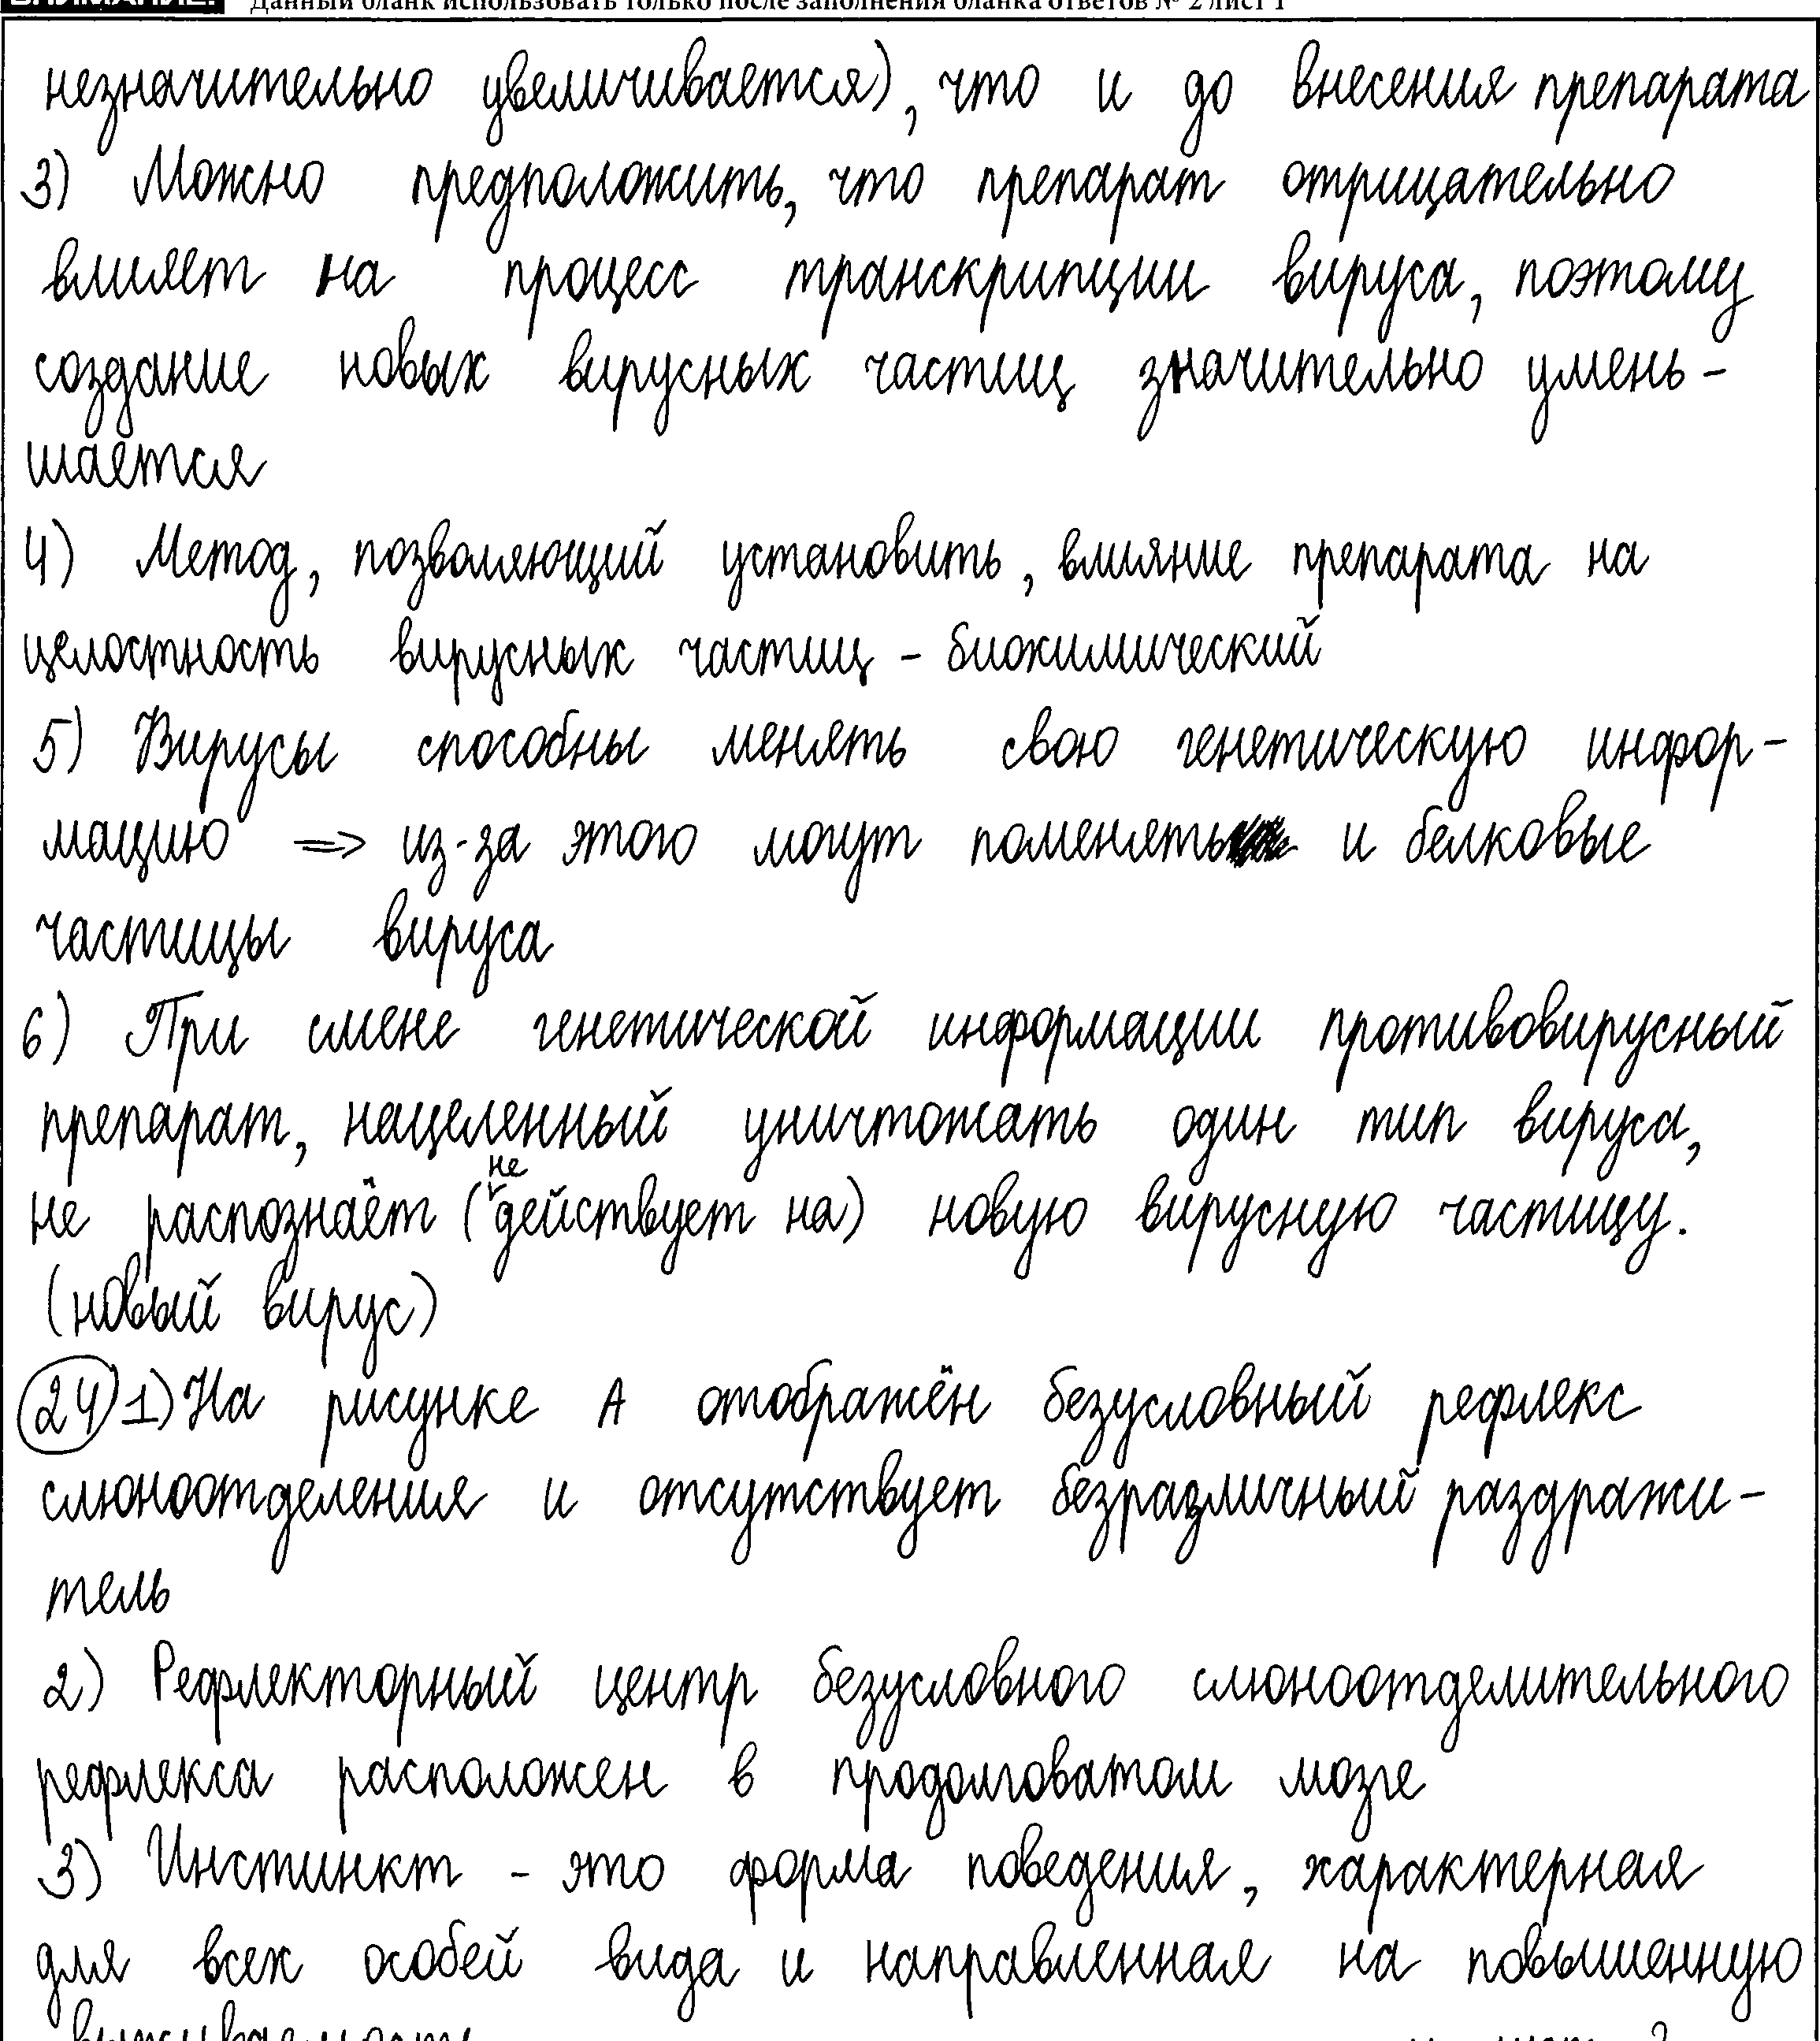 ВНИМАНИЕ! Данный бланк использовать только после заполнения бланка ответов № 2 лист 1
незначительно увеличивается), что и до внесения препарата
3) Можно предположить, что препарат отрицательно
влияет на процесс транскрипции вируса, поэтому
создание новых вирусных частиц значительно умень-
шается
4) Метод, позволяющий установить, влияние препарата на
целостность вирусных частиц - биохимический
5) Вирусы способны менять свою генетическую инфор-
мацию => из-за этого могут поменять и белковые
частицы вируса
6) При смене генетической информации противовирусный
препарат, нацеленный уничтожать один тип вируса,
не распознаёт (не действует на) новую вирусную частицу.
(новый вирус)
24 1) На рисунке А отображён безусловный рефлекс
слюноотделения и отсутствует безразличный раздражи-
тель
2) Рефлекторный центр безусловного слюноотделительного
рефлекса расположен в продолговатом мозге
3) Инстинкт - это форма поведения, характерная
для всех особей вида и направленная на повышенную
выживаемость